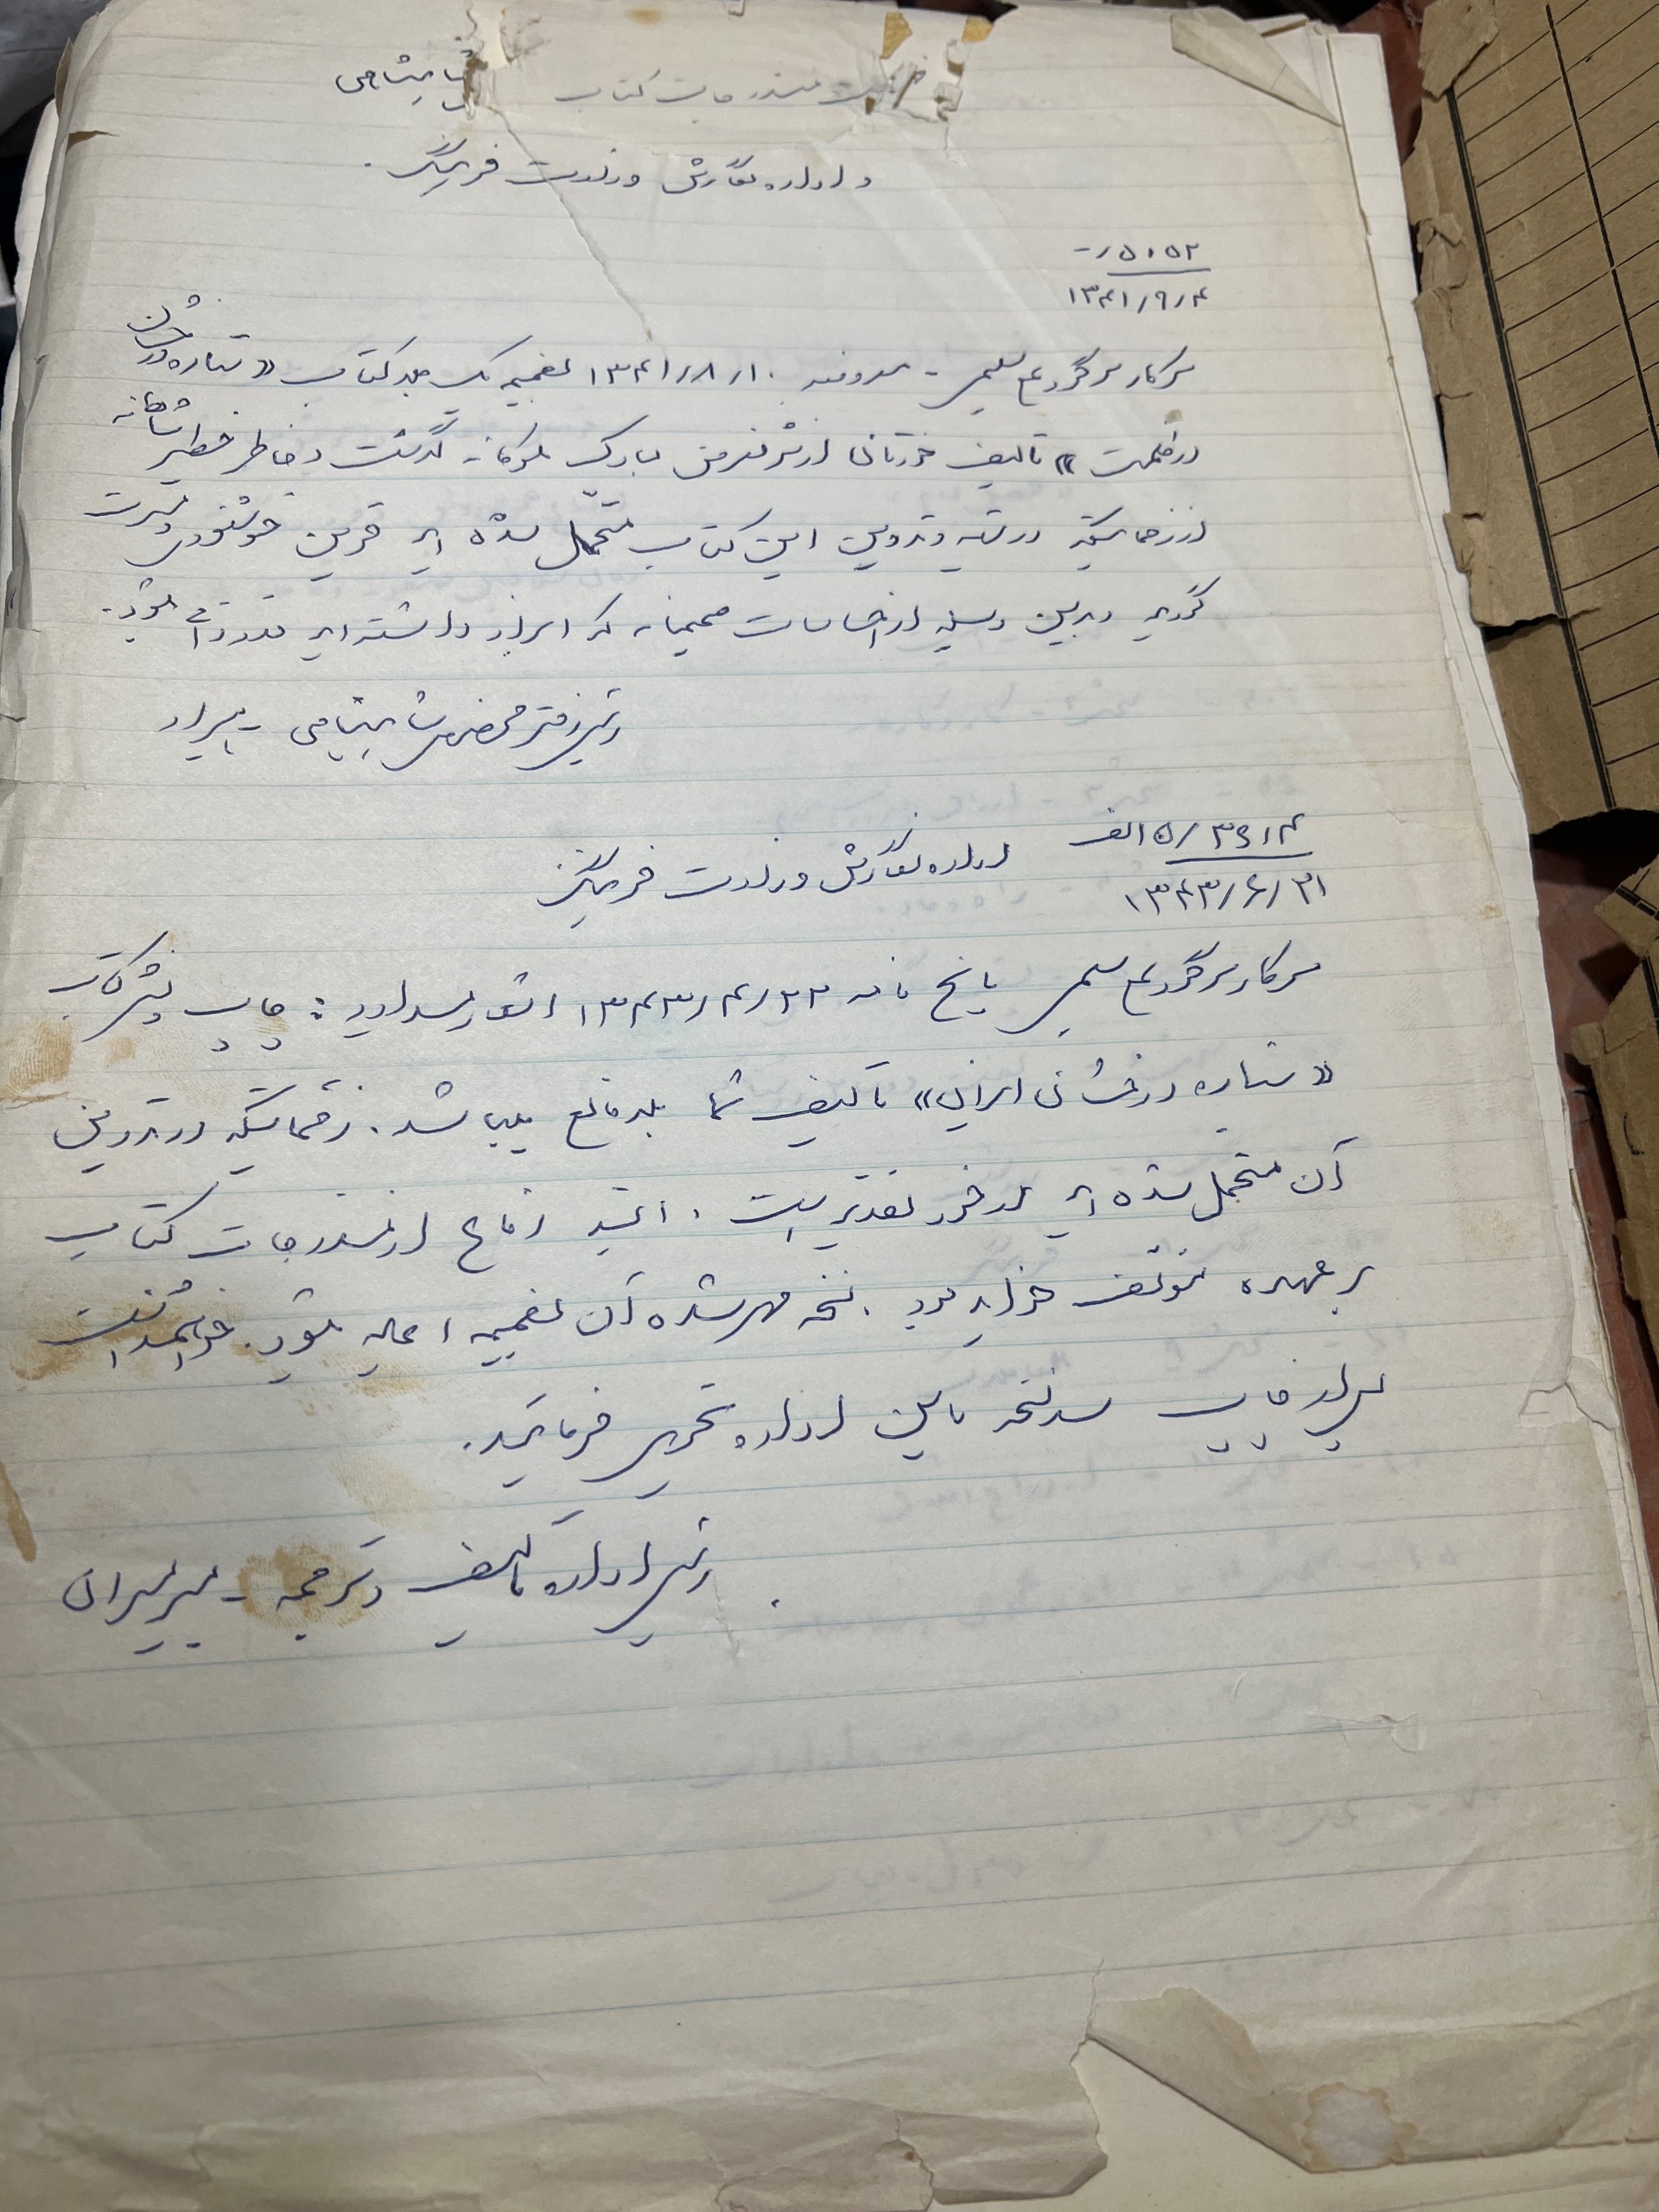 مندرجات کتاب شاهنشاهی
و اداره نگارش وزارت فرهنگ.
۵۰۵۲/-
۱۳۴۱/۹/۴
سرکار سرگرد ع سلیمی - معروضه ۱۳۴۱/۸/۱۰ بضمیمه یک جلد کتاب «ستاره درخشان
در ظلمت» تألیف خودتان از شرفعرض مبارک ملوکانه گذشت و خاطر خطیر شاهانه
از زحماتیکه در تهیه و تدوین این کتاب متحمل شده اید قرین خوشنودی و مسرت
گردید و بدین وسیله از احساسات صمیمانه که ابراز داشته اید قدردانی میشود.
رئیس دفتر مخصوص شاهنشاهی -
۳۶۰۴/۱۵الف
۱۳۴۳/۶/۳۱
اداره نگارش وزارت فرهنگ
سرکار سرگرد ع سلیمی پاسخ نامه ۱۳۴۳/۴/۲۳ اشعار میدارد: چاپ و نشر کتاب
«ستاره درخشان ایران» تألیف شما بلامانع میباشد. زحماتیکه در تدوین
آن متحمل شده اید در خور تقدیر است. البته دفاع از مندرجات کتاب
بر عهده مؤلف خواهد بود. نسخه مهر شده آن بضمیمه اعاده میشود. خواهشمند است
پس از چاپ سه نسخه باین اداره تحویل فرمائید.
رئیس اداره تألیف و ترجمه -